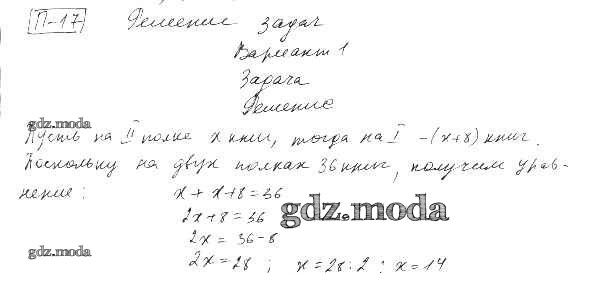 П-17 Решение задач
Вариант 1
Задача
Решение
gdz.moda
Пусть на II полке x книг, тогда на I - (x+8) книг.
Поскольку на двух полках 36 книг, получим урав-
нение: x + x + 8 = 36
2x + 8 = 36
gdz.moda
2x = 36 - 8
gdz.moda
2x = 28 ; x = 28 : 2 ; x = 14